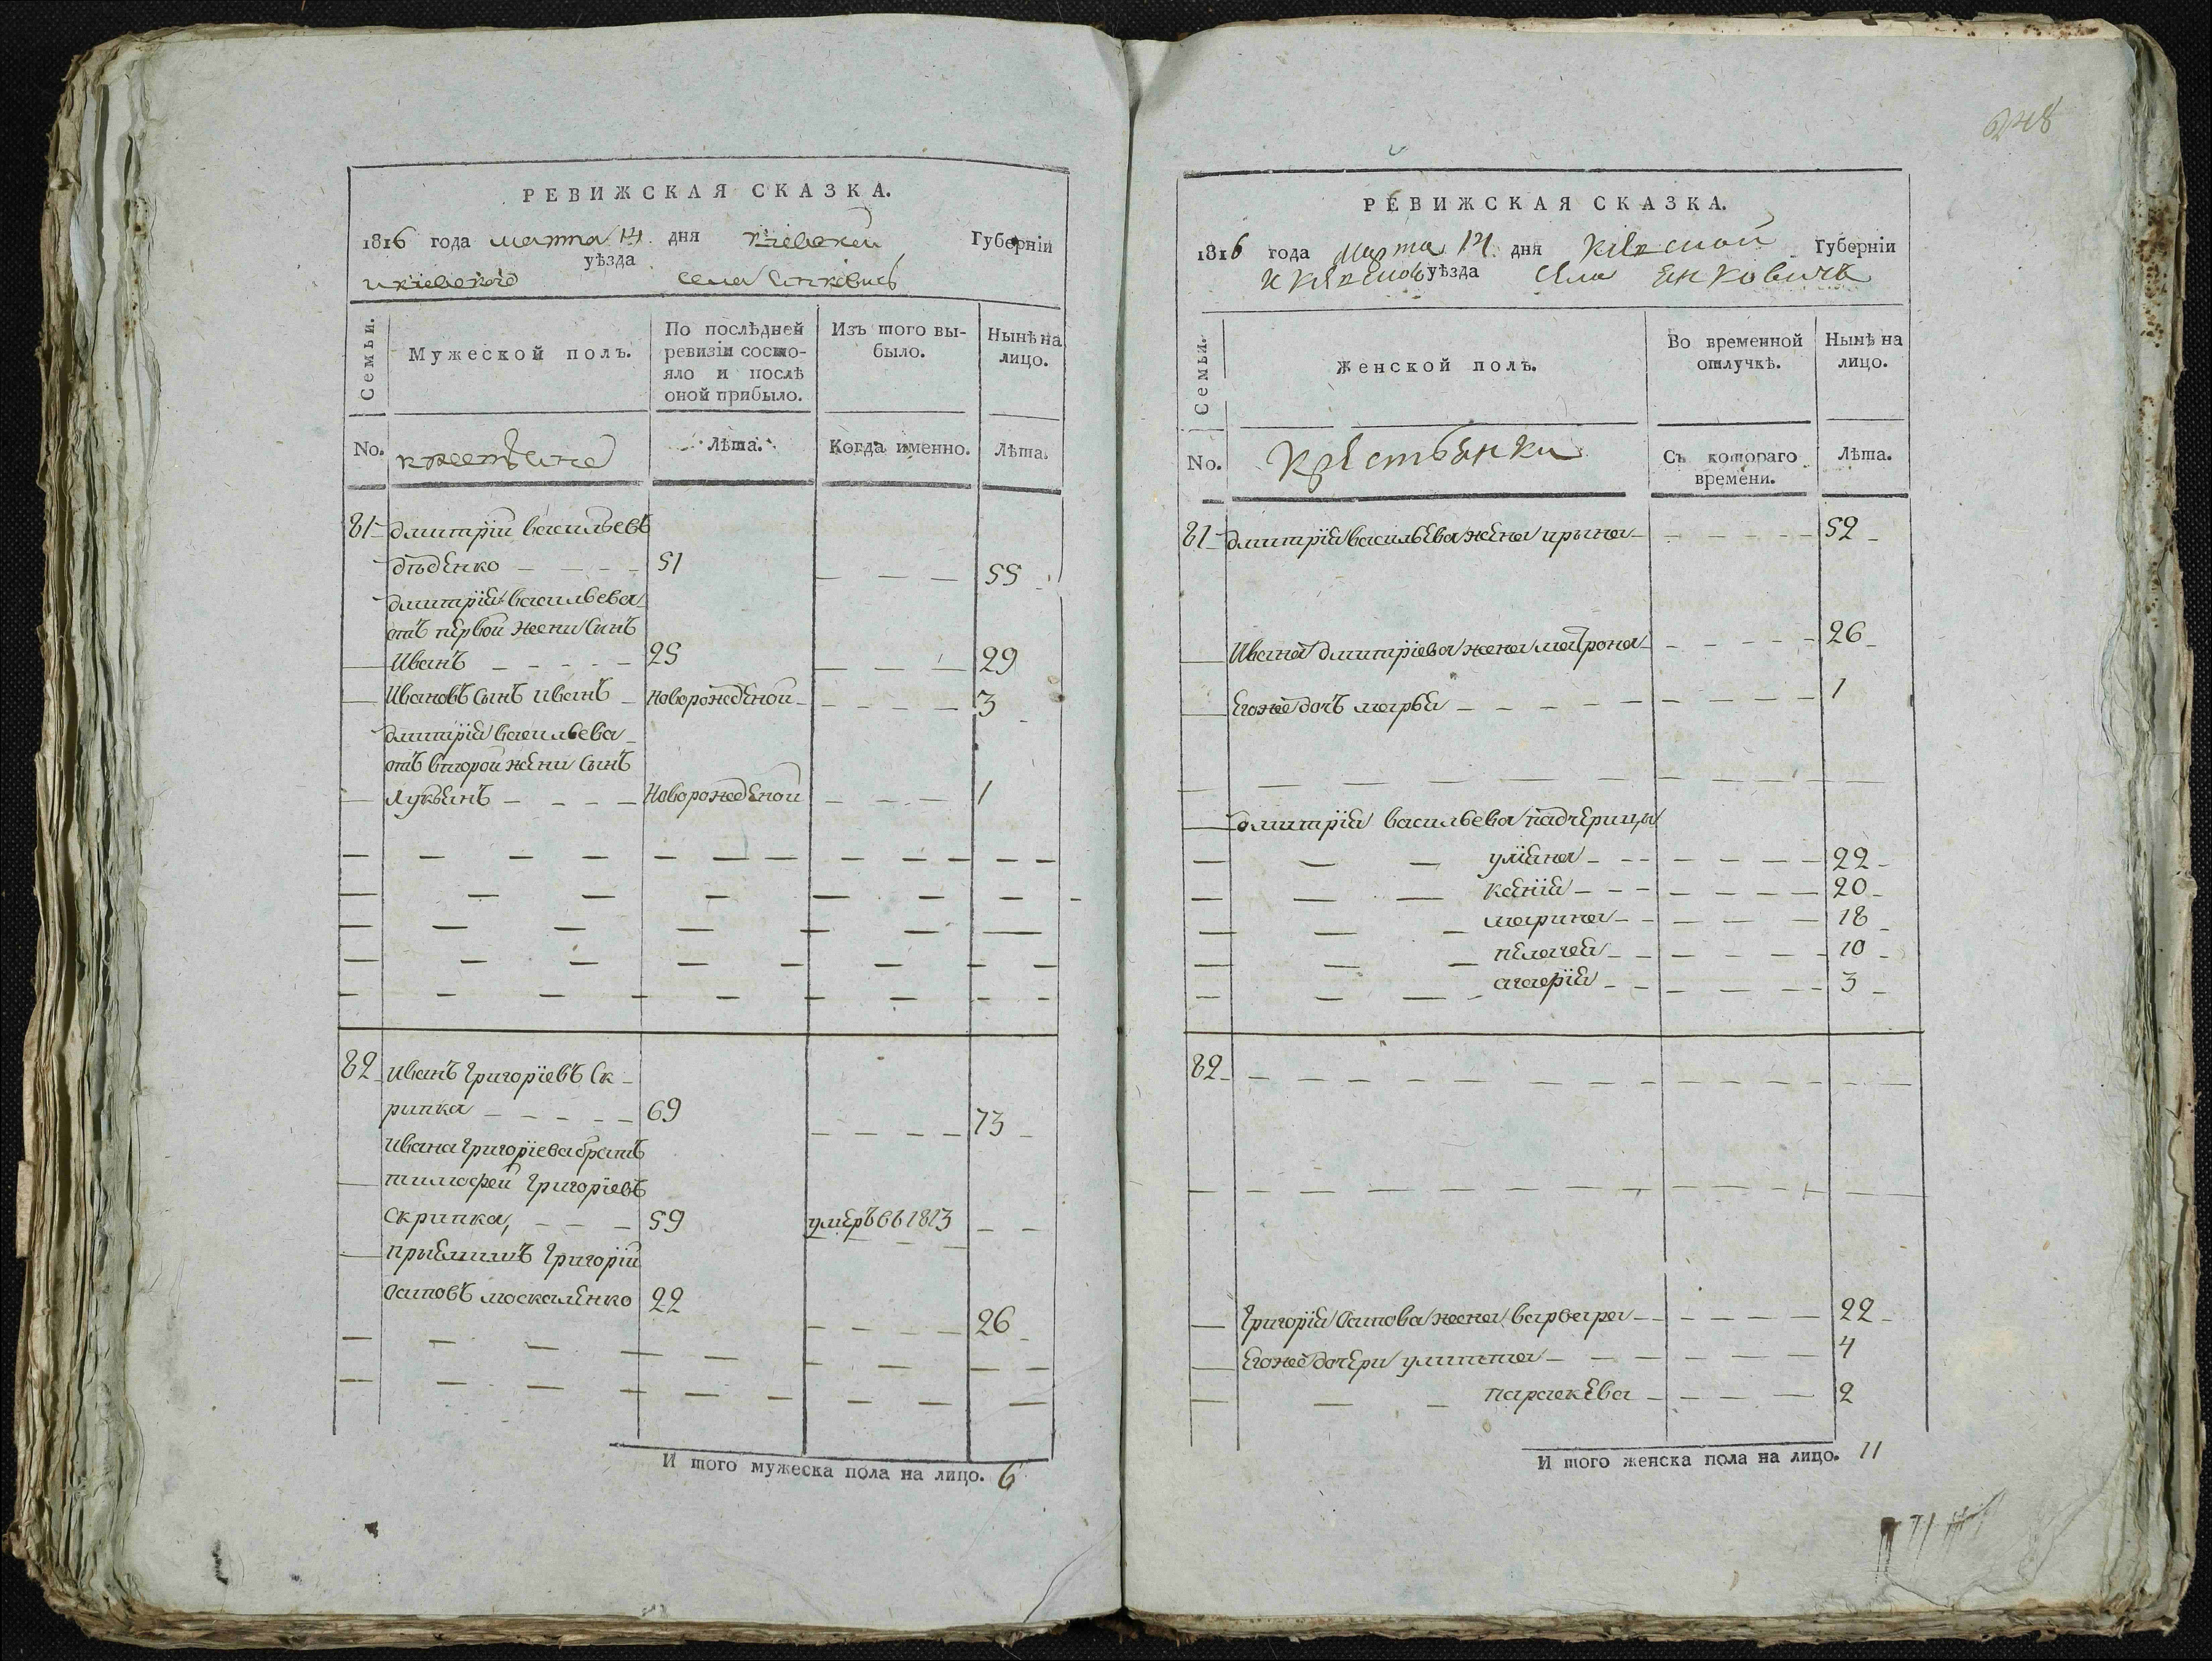 248
РЕВИЖСКАЯ СКАЗКА.
1816 года марта 14 дня киевской Губерніи
и киевского уѣзда села Янковичъ
Семьи.
Мужеской полъ.
По послѣдней ревизіи состояло и послѣ оной прибыло.
Изъ того выбыло.
Нынѣ на лицо.
No.
крестьяне
Лѣта.
Когда именно.
Лѣта.
81 дмитрій васильевъ
дѣденко 51 55
дмитрія васильева
отъ первой жени синъ
Иванъ 25 29
Ивановъ сынъ иванъ новорожденой 3
дмитрія васильева
отъ второй жени сынъ
Лукьянъ новорожденой 1
82 иванъ григоріевъ Ск
рипка 69 73
ивана григоріева братъ
тимофей григоріевъ
скрипка, 59 умеръ въ 1813
прыемишъ григорій
Осиповъ москаленко 22 26
И того мужеска пола на лицо. 6
РЕВИЖСКАЯ СКАЗКА.
1816 года Марта 14 дня Киевской Губерніи
и Киевского уѣзда Села Янковичъ
Семьи.
Женской полъ.
Во временной отлучкѣ.
Нынѣ на лицо.
No.
Крестьянки
Съ котораго времени.
Лѣта.
81 дмитрія васильева жена ирына 52
Ивана дмитріева жена матрона 26
Егоже дочъ марья 1
дмитрія васильева падчерицы
уляна 22
ксенія 20
марина 18
пелагея 10
агафія 3
82
григорія Осипова жена варвара 22
Егоже дочери улитта 4
параскева 2
И того женска пола на лицо. 11